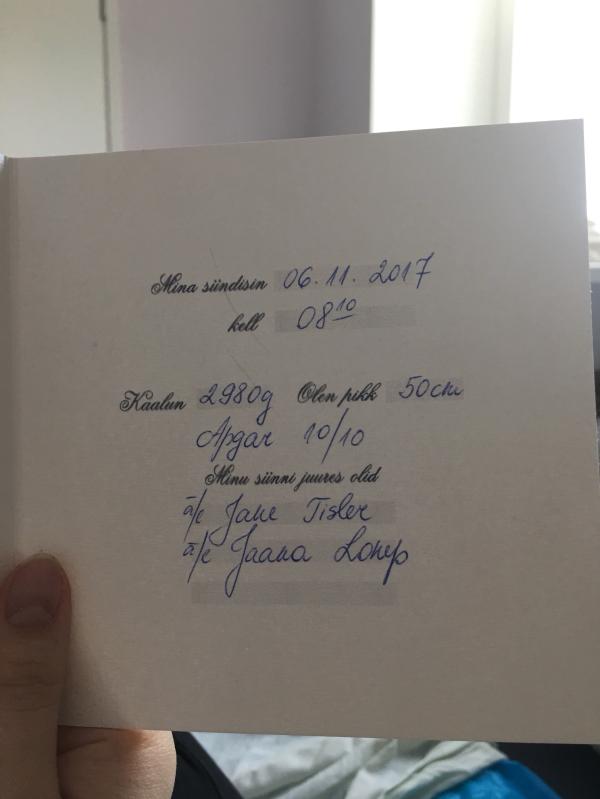 Mina sündisin 06.11.2017
kell 08 10
Kaalun 2980g Olen pikk 50cm
Apgar 10/10
Minu sünni juures olid
ä/e Jane Tisler
ä/e Jaana